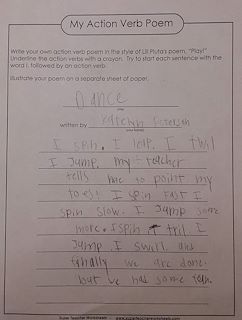 My Action Verb Poem
Write your own action verb poem in the style of Lill Pluta's poem, "Play!"
Underline the action verbs with a crayon. Try to start each sentence with the
word I, followed by an action verb.
Illustrate your poem on a separate sheet of paper.
Dance
written by Peterson
I spin. I leap. I
I Jump. my teacher
tells me to point my
toes. I spin fast I
spin slow. I Jump some
more. I spin I
Jump. I swirl. and
finally we are done.
but we had some fun.
Super Teacher Worksheets - www.superteacherworksheets.com